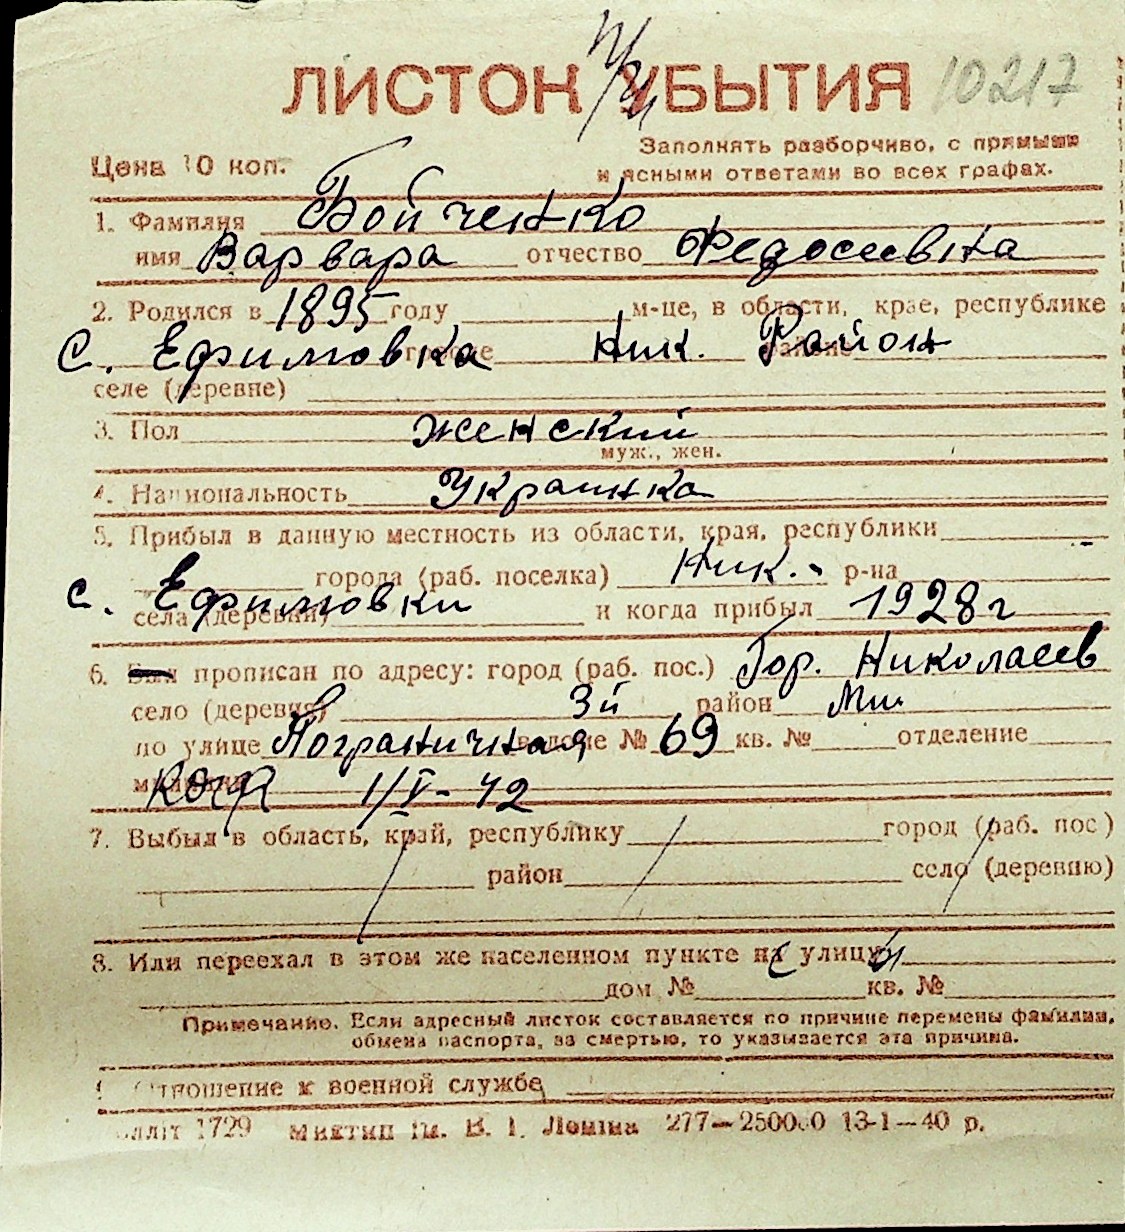 ЛИСТОК УБЫТИЯ 10217
Цена 10 коп.
Заполнять разборчиво, с прямыми
и ясными ответами во всех графах.
1. Фамилия Бойченко
имя Варвара отчество Федосеевна
2. Родился в 1895 году м-це, в области, крае, республике
с. Ефимовка Ник. Район
селе (деревне)
3. Пол женский
муж., жен.
4. Национальность Украинка
5. Прибыл в данную местность из области, края, республики
города (раб. поселка) Ник. р-на
с. Ефимовки
села (деревни) и когда прибыл 1928 г
6. Был прописан по адресу: город (раб. пос.) Гор. Николаев
село (деревня) 3й район
по улице Пограничная № 69 кв. № отделение
милиции 1/V-42
7. Выбыл в область, край, республику город (раб. пос)
район село (деревню)
8. Или переехал в этом же населенном пункте на улицу
дом № кв. №
Примечание. Если адресный листок составляется по причине перемены фамилии,
обмена паспорта, за смертью, то указывается эта причина.
Отношение к военной службе
1729 В. І. Леніна 277—250000 13-1—40 р.